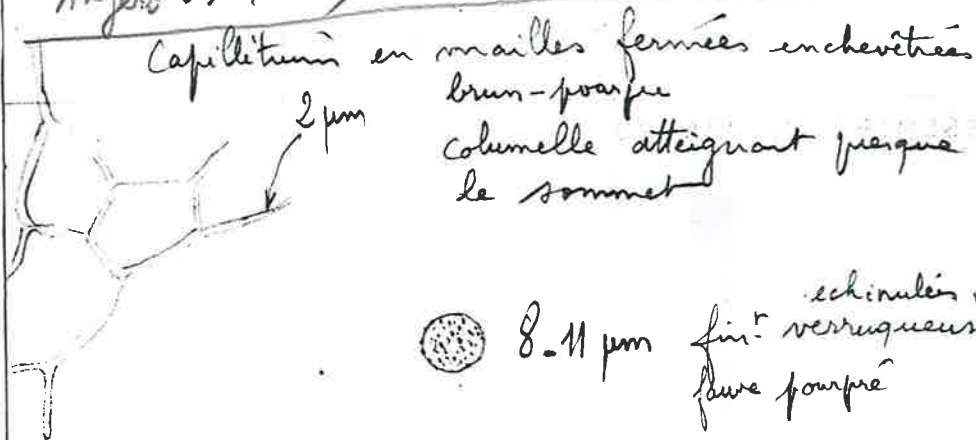 Capillitium en mailles fermées enchevêtrées
brun-pourpre
2 µm
columelle atteignant presque
le sommet
echinulées,
8-11 µm fin.t verruqueus
fauve pourpré